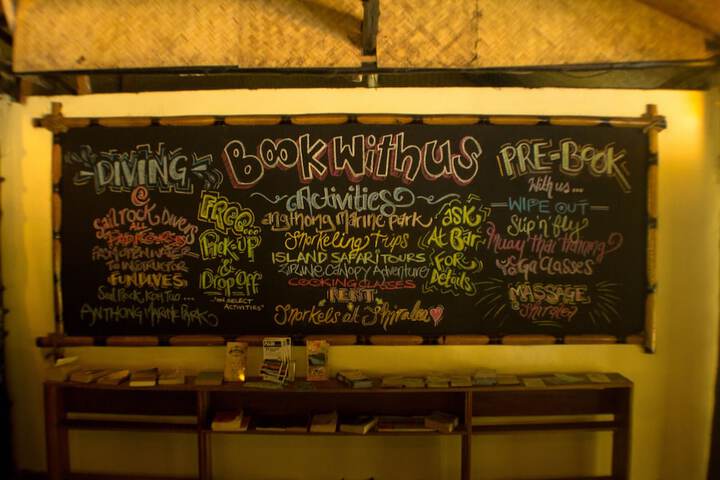 DIVING
@
Sail Rock Divers
ALL
FROM OPEN WATER
TO INSTRUCTOR
FUNDIVES
Sail Rock, Koh Tao ...
ANGTHONG MARINE PARK
FREE...
Pick-up
&
Drop Off
"ON SELECT
ACTIVITIES"
Book With us
Activities
angthong Marine park
Snorkeling Trips
ISLAND SAFARI TOURS
ZIPLINE CANOPY ADVENTURE
COOKING CLASSES
RENT
Snorkels at Shiralea
ASK
At BAR
FOR
Details
PRE-BOOK
With us...
WIPE OUT
Slip n' fly
Muay thai training
YOGA Classes
MASSAGE
@ Shiralea